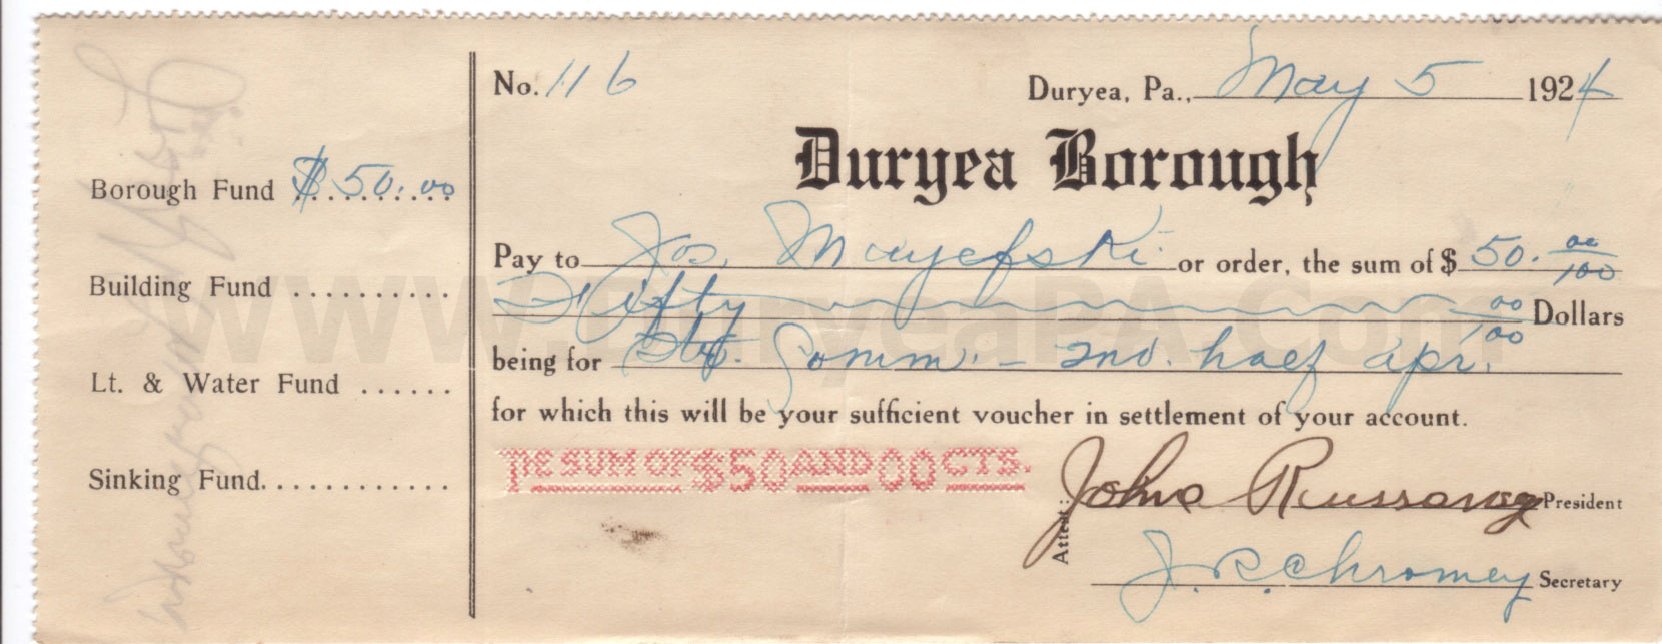 No. 116 Duryea, Pa., May 5 1924
Duryea Borough
Borough Fund $50.00
Building Fund ..........
Lt. & Water Fund ......
Sinking Fund............
Pay to Jos. Mayefski or order, the sum of $ 50. 00/100
Fifty 00/100 Dollars
being for St. Comm. - 2nd. half Apr.
for which this will be your sufficient voucher in settlement of your account.
THE SUM OF $50 AND 00 CTS.
Attest:
John Russavag President
J. R. Chromey Secretary
www.DuryeaPA.Com